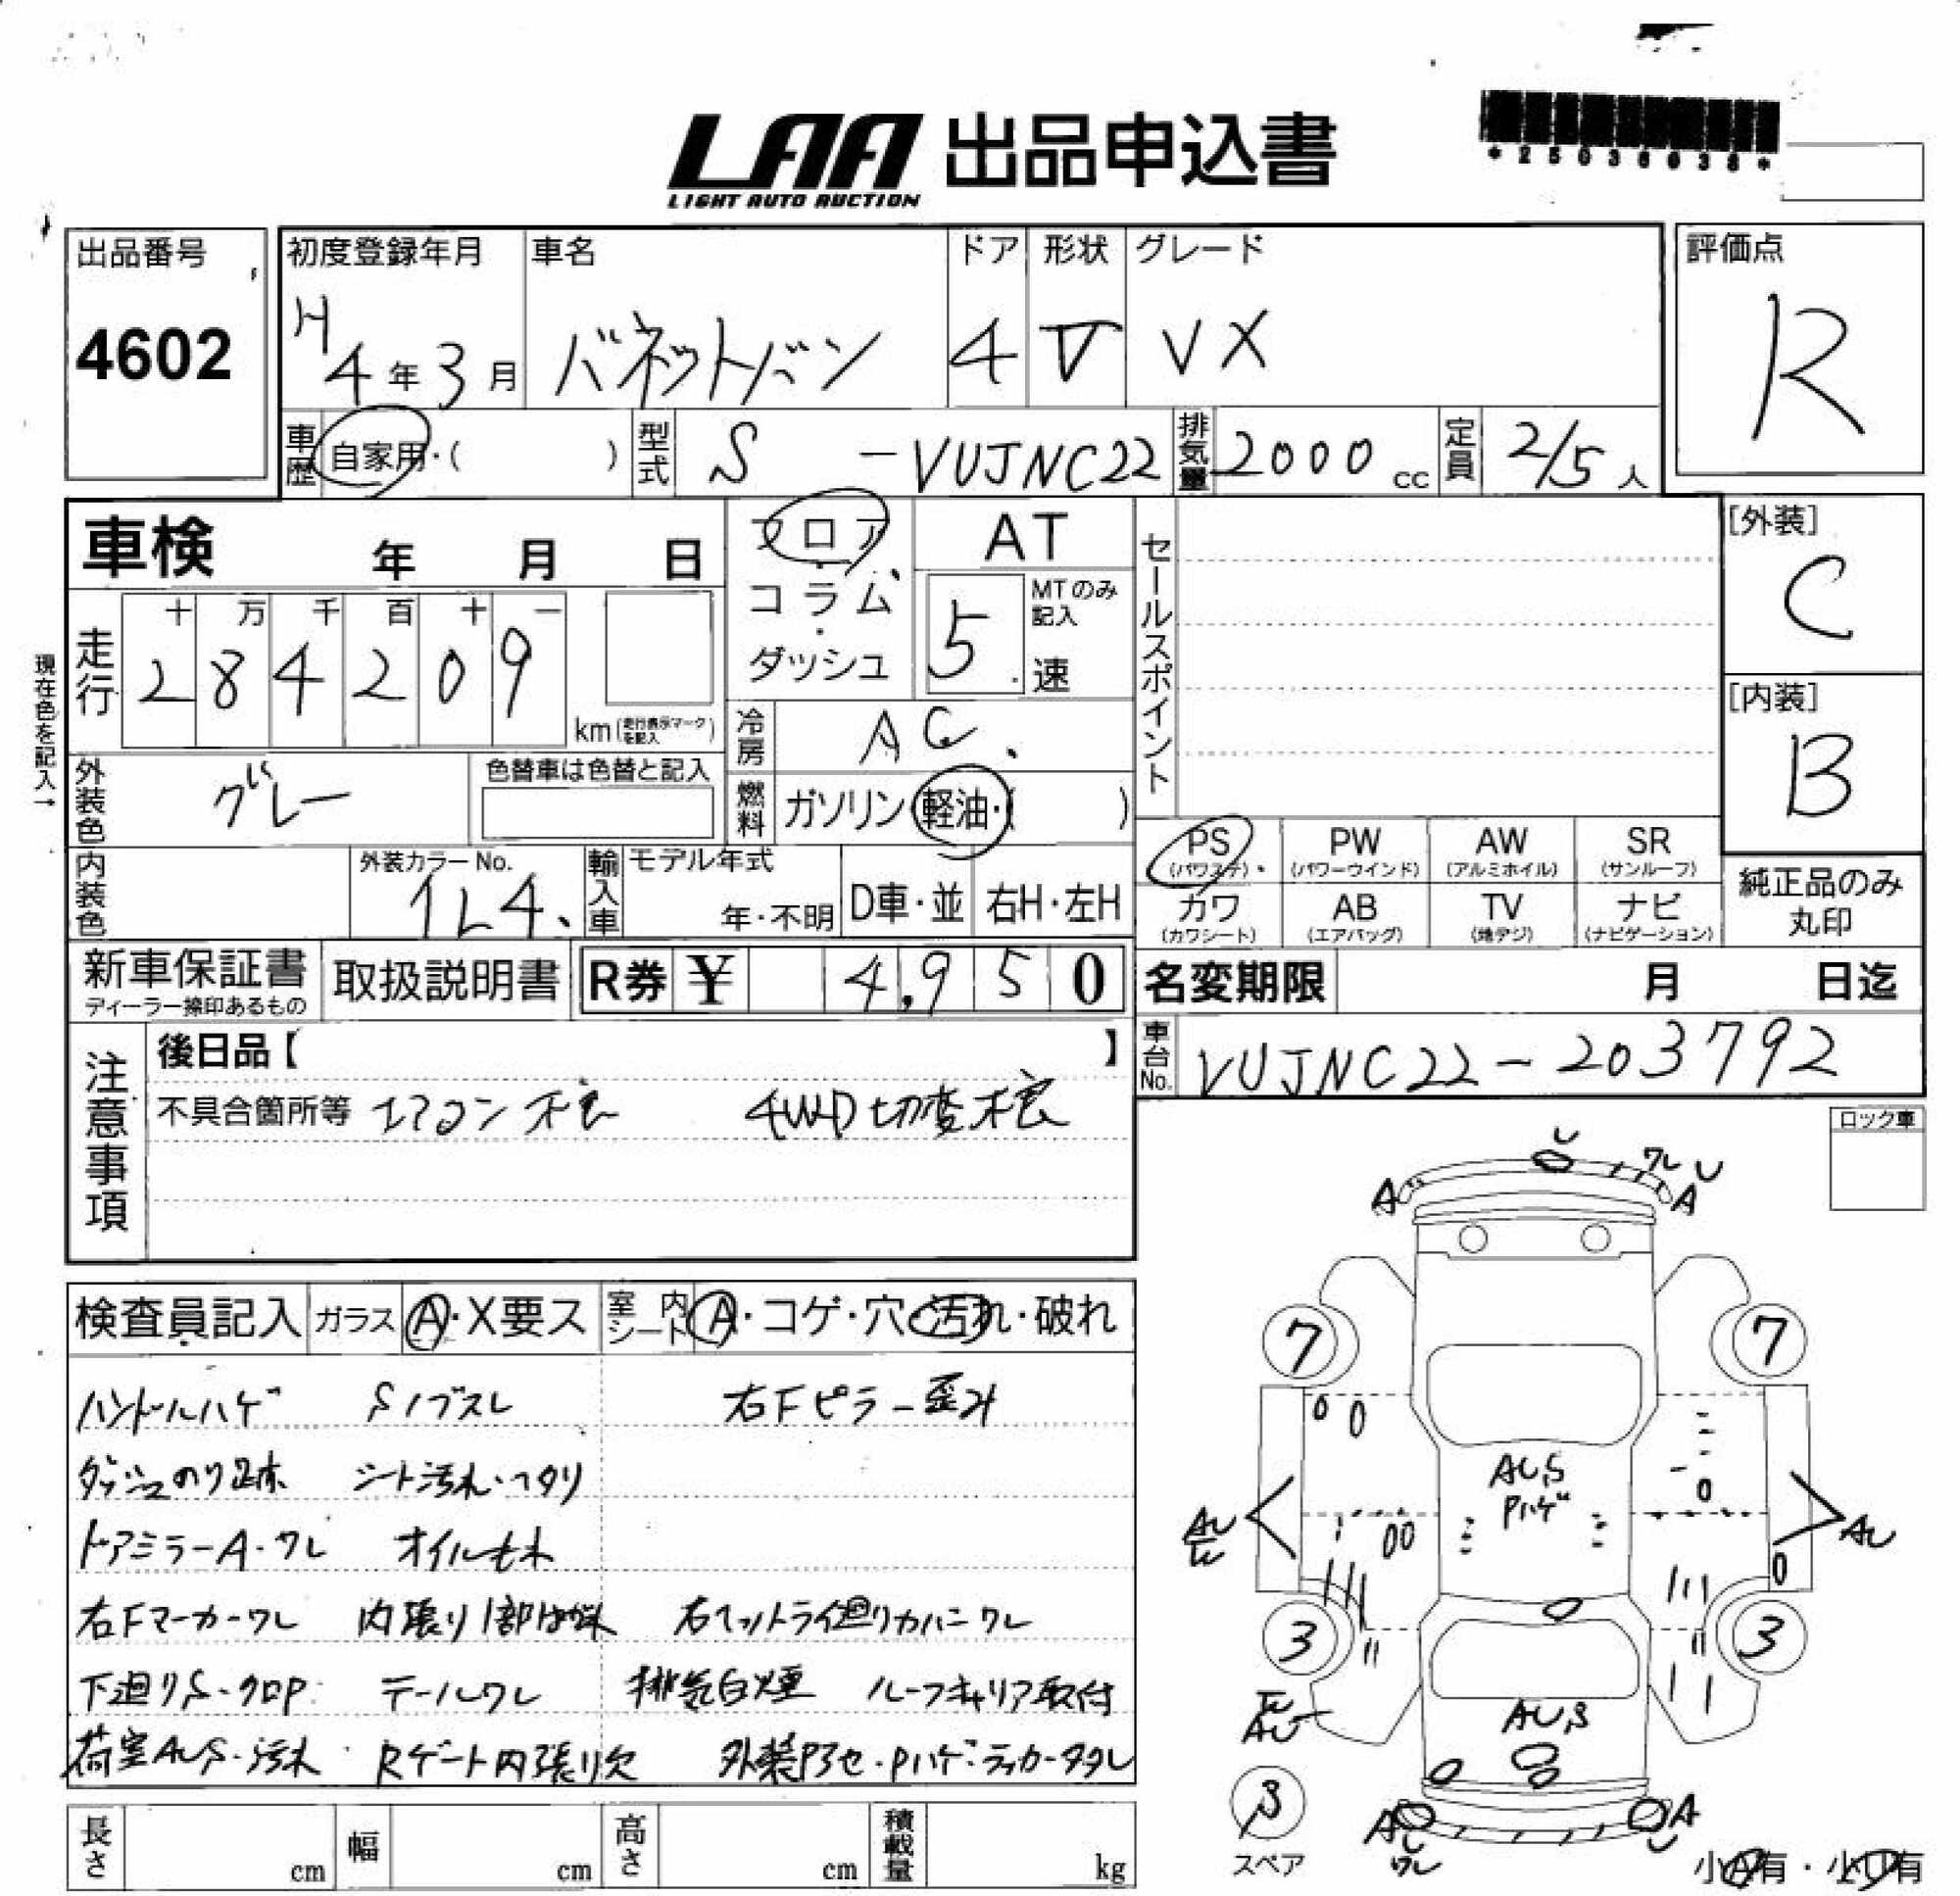 LAA 出品申込書
LIGHT AUTO AUCTION
*25036038*
出品番号
4602
初度登録年月
H4年3月
車名
バネットバン
ドア
4
形状
V
グレード
VX
評価点
R
車歴
自家用・( )
型式
S-VUJNC22
排気量
2000cc
定員
2/5人
[外装]
C
[内装]
B
車検 年 月 日
走行
十 万 千 百 十 一
2 8 4 2 0 9
km(走行表示マークを記入)
現在色を記入→
フロア・コラム・ダッシュ
AT
MTのみ記入
5速
冷房
AC
燃料
ガソリン・軽油・( )
セールスポイント
外装色
グレー
色替車は色替と記入
内装色
外装カラーNo.
1L4
輸入車
モデル年式
年・不明
D車・並
右H・左H
PS (パワステ)
PW (パワーウインド)
AW (アルミホイル)
SR (サンルーフ)
カワ (カワシート)
AB (エアバッグ)
TV (地デジ)
ナビ (ナビゲーション)
純正品のみ丸印
新車保証書
ディーラー捺印あるもの
取扱説明書
R券 ¥ 4,950
名変期限 月 日迄
車台No.
VUJNC22-203792
注意事項
後日品【 】
不具合箇所等 エアコン不良 4WD切変不良
ロック車
検査員記入
ガラス A・X要ス
室内シート A・コゲ・穴・汚れ・破れ
ハンドルハゲ Sノブスレ 右Fピラー歪み
ダッシュのり跡 シート汚れ・ヘタリ
ドアミラーA・ワレ オイルもれ
右Fマーカーワレ 内張り1部はがれ 右ヘッドライト廻りカバーワレ
下廻りS・クロP テールワレ 排気白煙 ルーフキャリア取付
荷室AUS・汚れ Rゲート内張り欠 外装Pアセ・Pハゲ・デカール
長さ cm
幅 cm
高さ cm
積載量 kg
U
ワレ U
A
A
7
7
AUS
Pハゲ
AU
AU
3
3
AU
AUS
3
スペア
A
U
ワレ
A
U
小A有・小U有